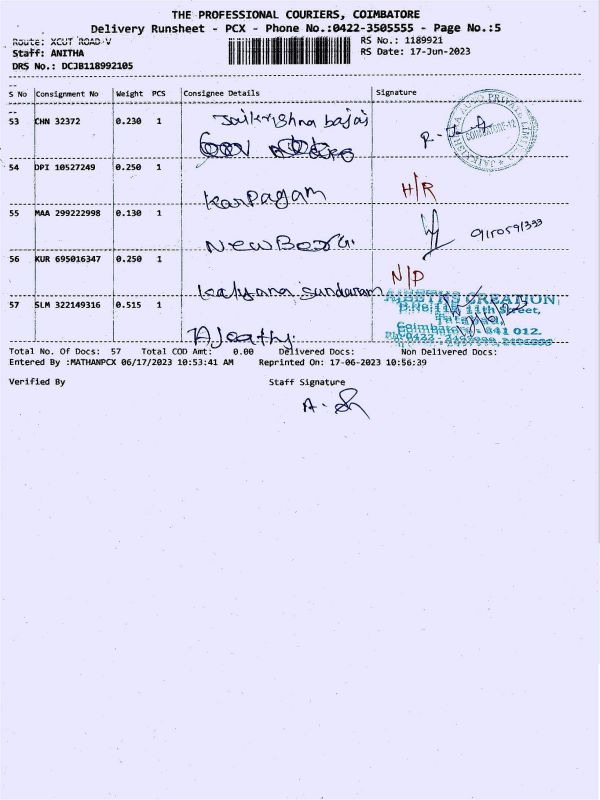 THE PROFESSIONAL COURIERS, COIMBATORE
Delivery Runsheet - PCX - Phone No.:0422-3505555 - Page No.:5
Route: XCUT ROAD V
RS No.: 1189921
Staff: ANITHA
RS Date: 17-Jun-2023
DRS No.: DCJB118992105
S No Consignment No Weight PCS Consignee Details Signature
53 CHN 32372 0.230 1 Jaikrishna bajaj
54 DPI 10527249 0.250 1 Karpagam H/R
55 MAA 299222998 0.130 1 New Bera
56 KUR 695016347 0.250 1 Kalyana Sundaram N/D
57 SLM 322149316 0.515 1
CREATION
11th Street,
641 012.
Total No. Of Docs: 57 Total COD Amt: 0.00 Delivered Docs: Non Delivered Docs:
Entered By :MATHANPCX 06/17/2023 10:53:41 AM Reprinted On: 17-06-2023 10:56:39
Verified By Staff Signature